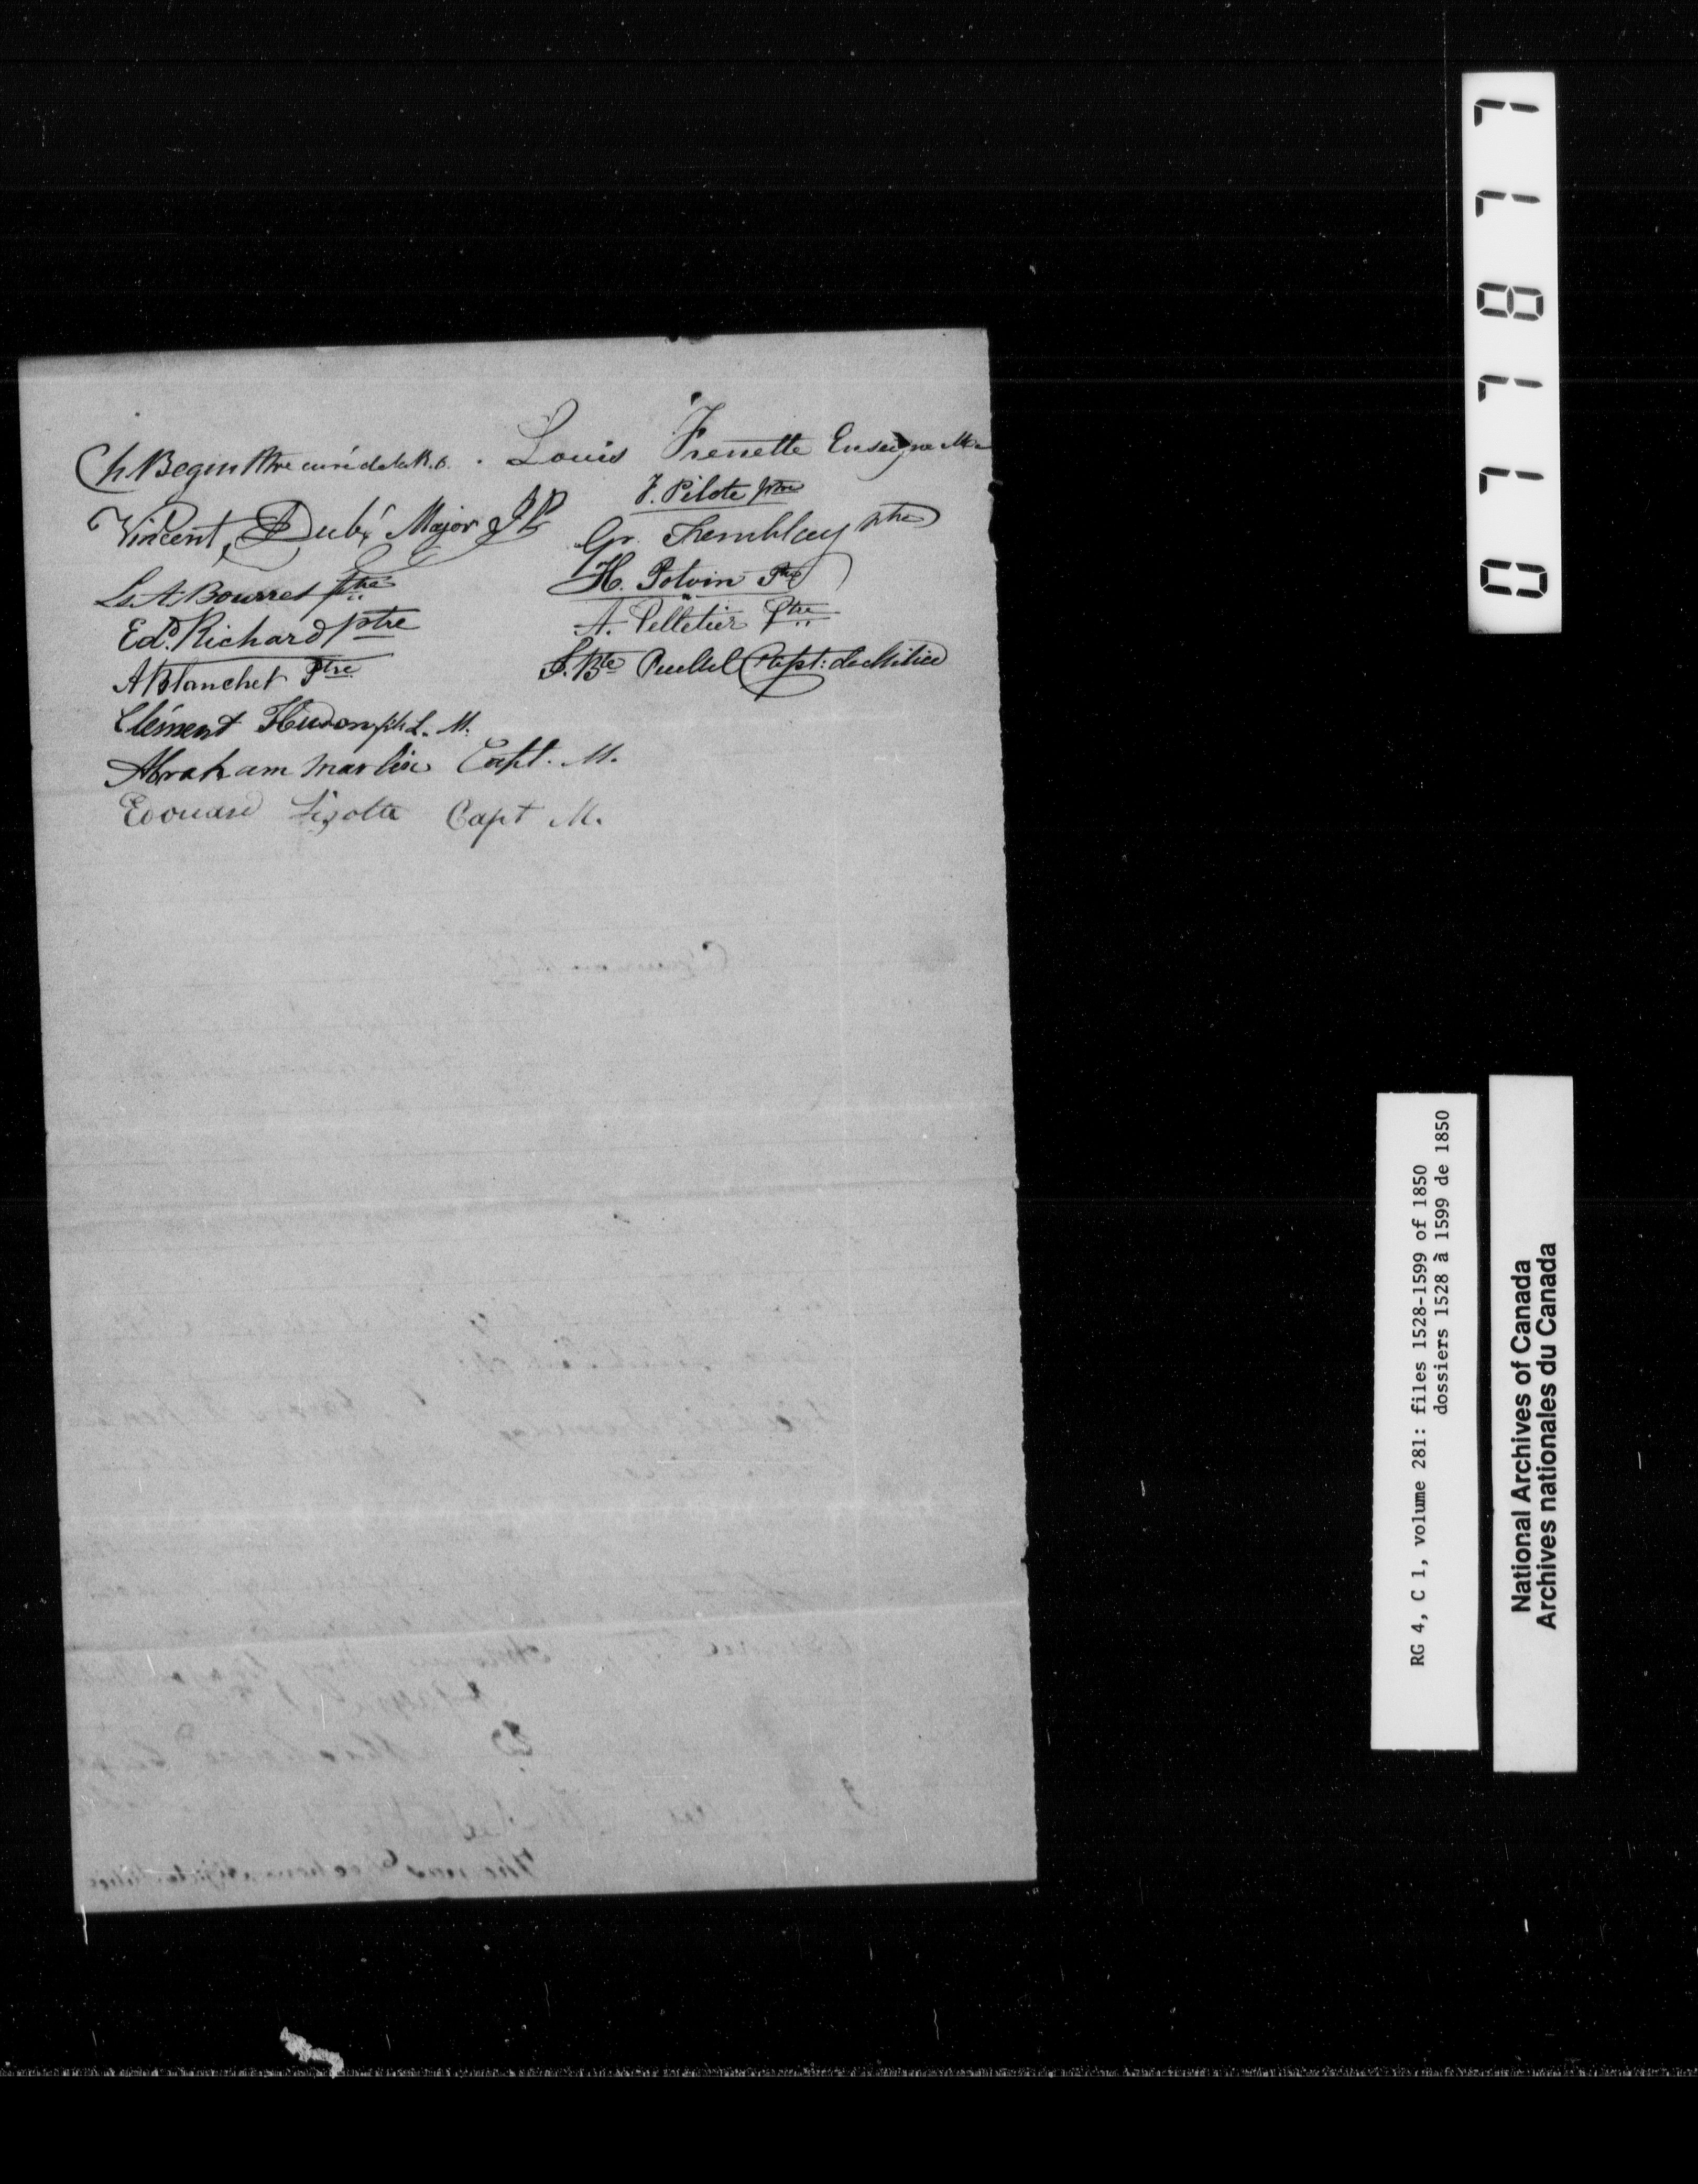 Ch. Begin Ptre curé de la R.O.
Vincent Dubé Major J P
Ls. A. Bourret ptre
Edd. Richard ptre
A Blanchet Ptre
Clément Hudon L. M.
Abraham Martin Capt. M.
Edouard Lizotte Capt M.
Louis Frenette Enseigne M.
F. Pilote ptre
Gr. Tremblay ptre
H. Potvin Ptre
A. Pelletier Ptre
J. Bte Capt: de Milice
077877
RG 4, C 1, volume 281: files 1528-1599 of 1850
dossiers 1528 à 1599 de 1850
National Archives of Canada
Archives nationales du Canada